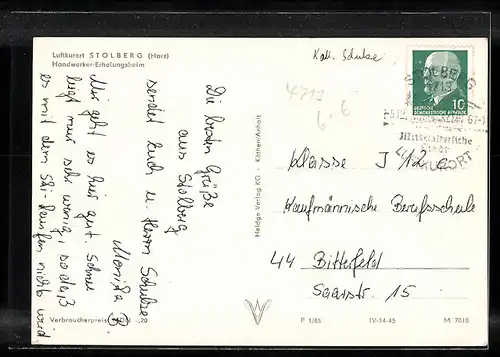 Luftkurort STOLBERG (Harz)
Handwerker-Erholungsheim
Die besten Grüße
aus Stolberg
sendet Euch u. Herrn Schulze
Monika B.
Mir geht es hier gut. Schnee
liegt nur sehr wenig, so daß
es mit dem Ski-Laufen nicht wird
Verbraucherpreis MDN -,20
Heldge Verlag KG · Köthen/Anhalt
4713
6. 6
STOLBERG
4713
DEUTSCHE
DEMOKRATISCHE REPUBLIK
10
Mittelalterliche
Stadt
KURORT
Klasse J 12 c
Kaufmännische Berufsschule
44 Bitterfeld
Saarstr. 15
P 1/65 IV-14-45 M 7010